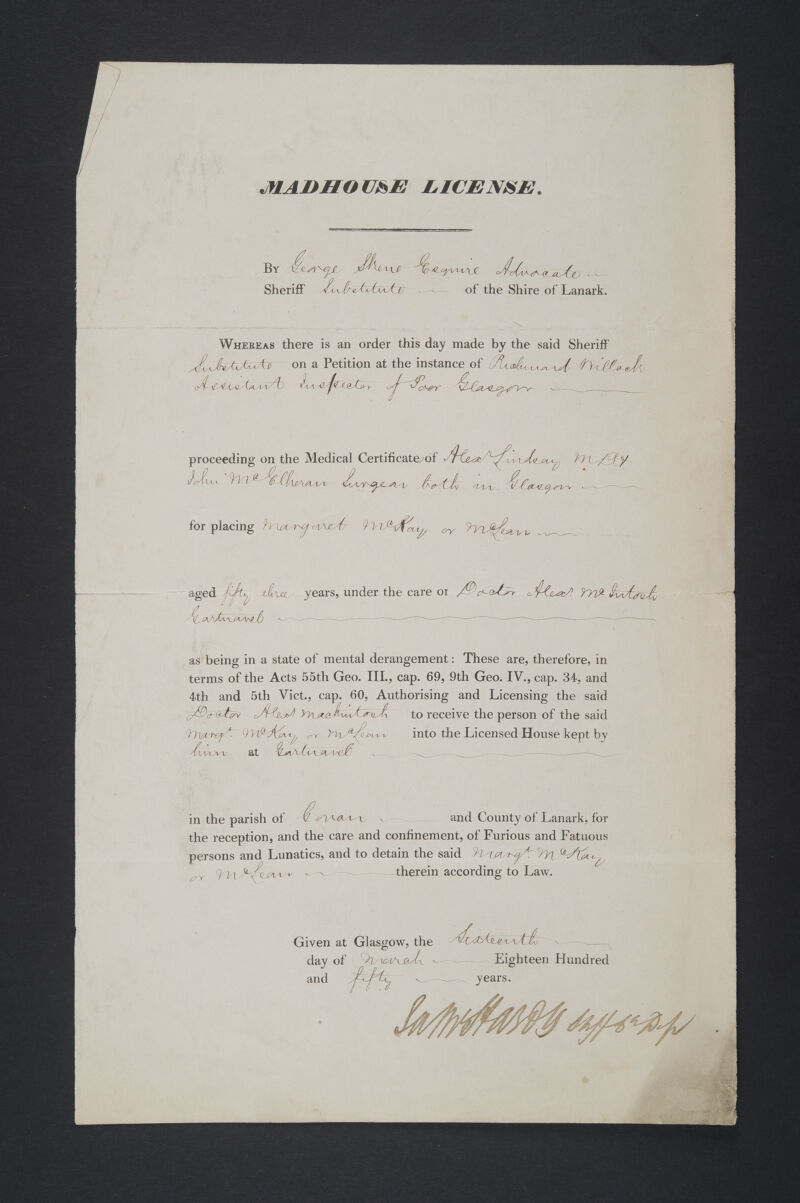 MADHOUSE LICENSE.
By George Skene Esquire Advocate
Sheriff Substitute of the Shire of Lanark.
Whereas there is an order this day made by the said Sheriff
Substitute on a Petition at the instance of Willock
Assistant Inspector of Poor Glasgow
proceeding on the Medical Certificate of Alexr Lindsay MD &
John McElheran Surgeon both in Glasgow
for placing Margaret McKay or McLean
aged fifty three years, under the care of Doctor Alexr McIntosh
Gartnavel
as being in a state of mental derangement: These are, therefore, in
terms of the Acts 55th Geo. III., cap. 69, 9th Geo. IV., cap. 34, and
4th and 5th Vict., cap. 60, Authorising and Licensing the said
Doctor Alexr Mackintosh to receive the person of the said
Margt. McKay or McLean into the Licensed House kept by
him at Gartnavel
in the parish of Govan and County of Lanark, for
the reception, and the care and confinement, of Furious and Fatuous
persons and Lunatics, and to detain the said Margt. McKay
or McLean therein according to Law.
Given at Glasgow, the Sixteenth
day of March Eighteen Hundred
and fifty years.